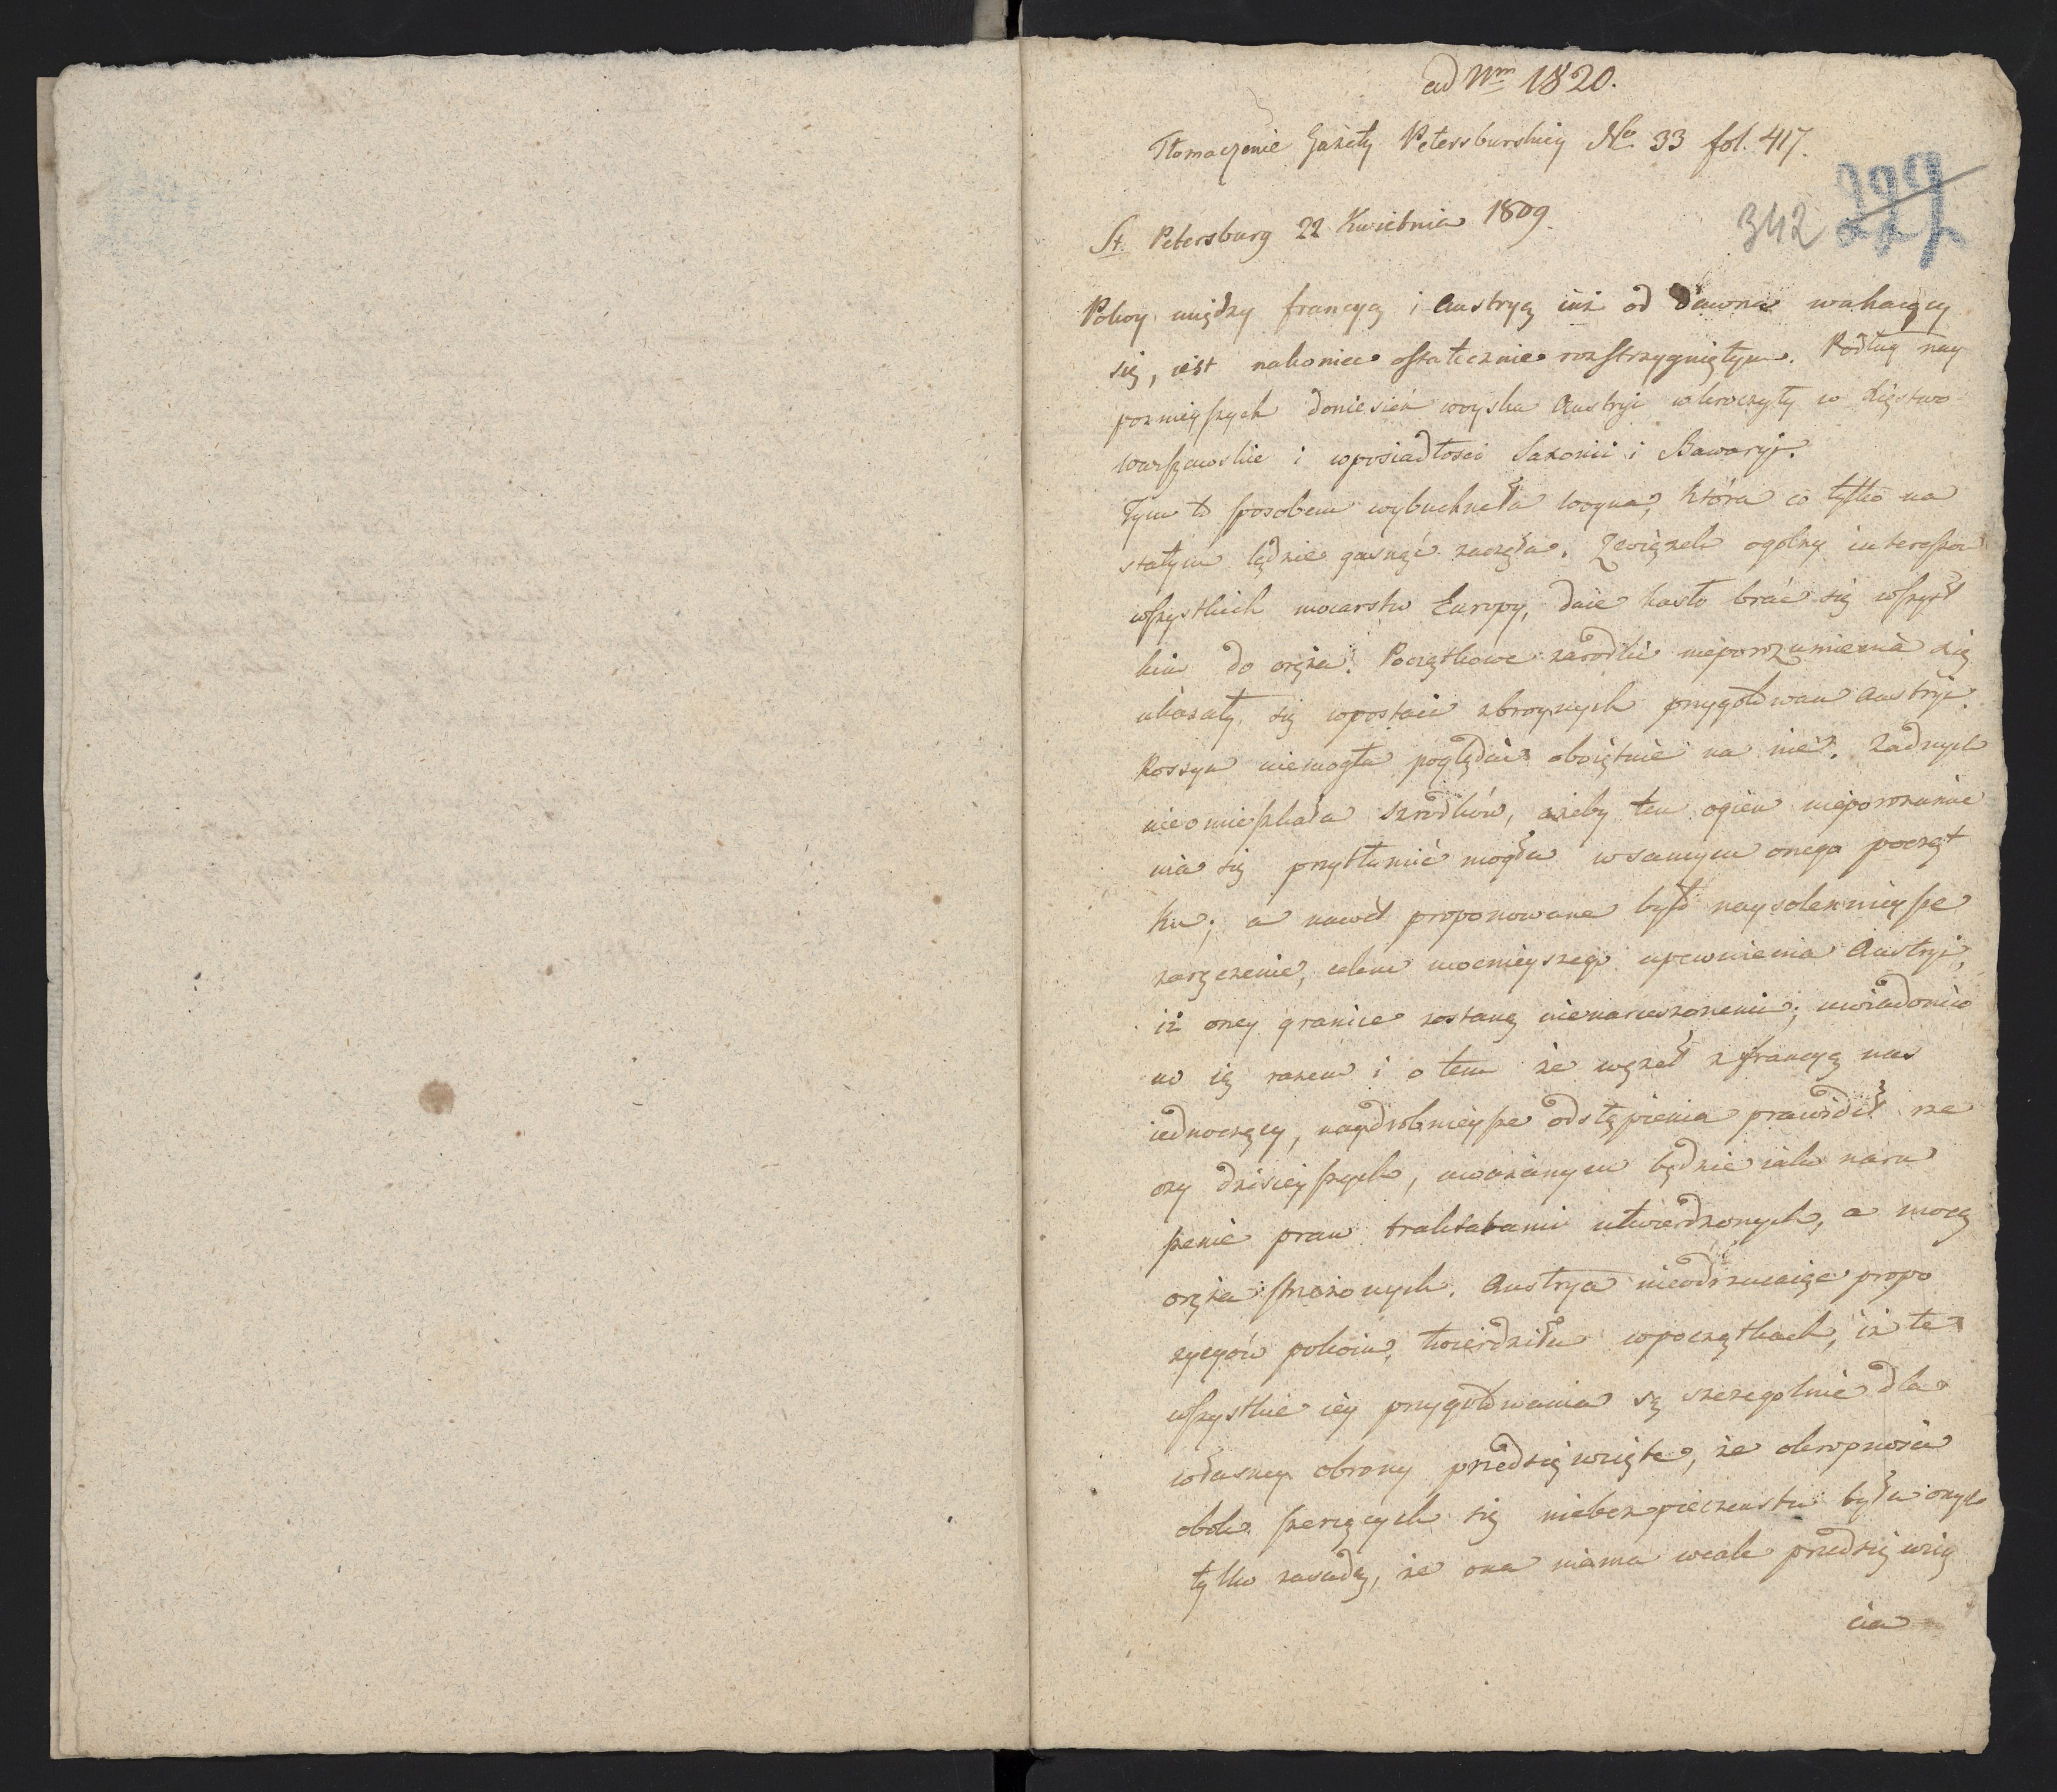 ad Nrm 1820.
Tłomaczenie Gazety Petersburskiey No. 33 fol. 417.
342 227
St. Petersburg 22 Kwietnia 1809.
Pokoy między francyą i Austryą iuż od dawna wahaiący
się, iest nakoniec ostatecznie rozstrzygniętym. Podług nay
poźnieyszych doniesień woyska Austryi wkroczyły w Xięstwo
Warszawskie i w posiadłości Saxonii i Bawaryi.
Tym to sposobem wybuchneła woyna, która co tylko na
stałym lądzie gasnąć zaczęła. Związek ogolny interessow
wszystkich mocarstw Europy, daie hasło brać się wszyst
kim do oręża. Początkowe zarodki nieporozumienia się
ukazały się w postaci zbroynych przygotowan Austryi.
Rossya niemogła poglądać oboiętnie na nie. Żadnych
nieomieszkała szrodków, ażeby ten ogien nieporozumie
nia się przytłumić mogła w samym onego począt
ku; a nawet proponowane było naysolennieysze
zaręczenie, celem mocnieyszego upewnienia Austryi,
iż oney granice zostaną nienaruszonemi; uwiadomio
no ią razem i o tem że węzeł z francyą nas
iednoczący, naydrobnieysze odstąpienia prawideł rze
czy dzisieyszych, uważanym będzie iako naru
szenie praw traktatami utwierdzonych, a mocą
oręża strzeżonych. Austrya nieodrzucaiąc propo
zycyów pokoiu, twierdziła w początkach, iż te
wszystkie iey przygotowania są szczegolnie dla
własney obrony przedsięwzięte, że okropności
obok szerzących się niebezpieczeństw była onych
tylko zasadą, że ona niema wcale przedsięwzię
cia